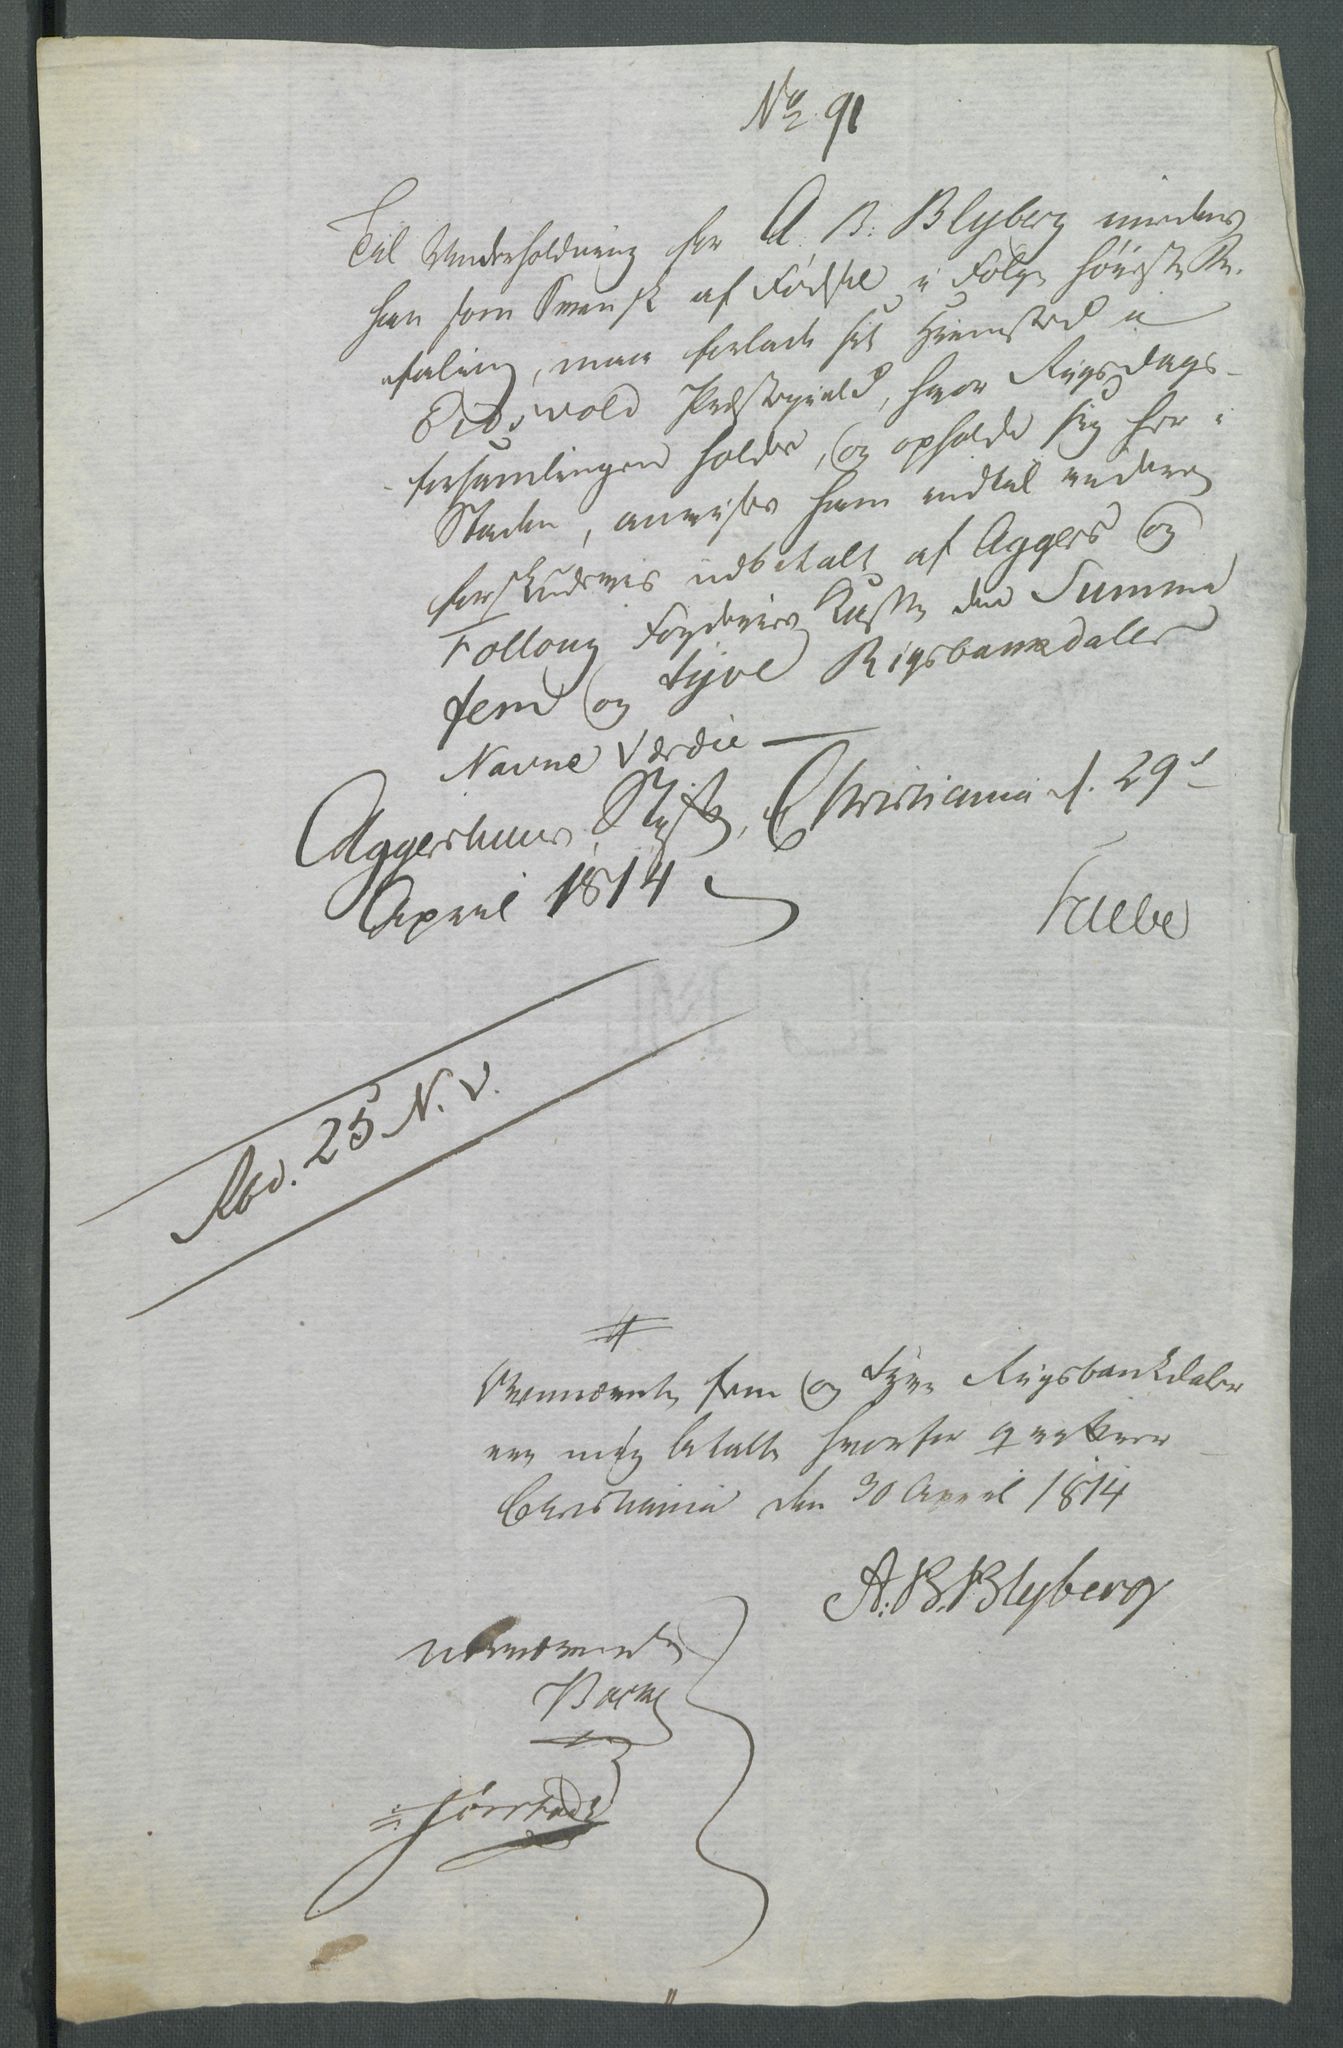 No 91
Til Underholdning for A. B. Blyberg imedens
han som Svensk af Fødsel i Følge høieste Be-
faling, maa forlade sit Hiemsted i
Eidsvold Præstegield, hvor Rigsdags-
forsamlingen holdes, og opholde sig her i
Staden, anvises ham indtil videre
forskudsviis udbetalt af Aggers og
Folloug Fogderiers Kasse den Summa
fem og tyve Rigsbankdaler
Navne Værdie
Aggershuus Stift, Christiania d. 29d
April 1814
Rbd. 25 N. V.
fem og tyve Rigsbankdaler
er mig betalte hvorfor qvitterer
Christiania den 30 April 1814
A. B. Blyberg